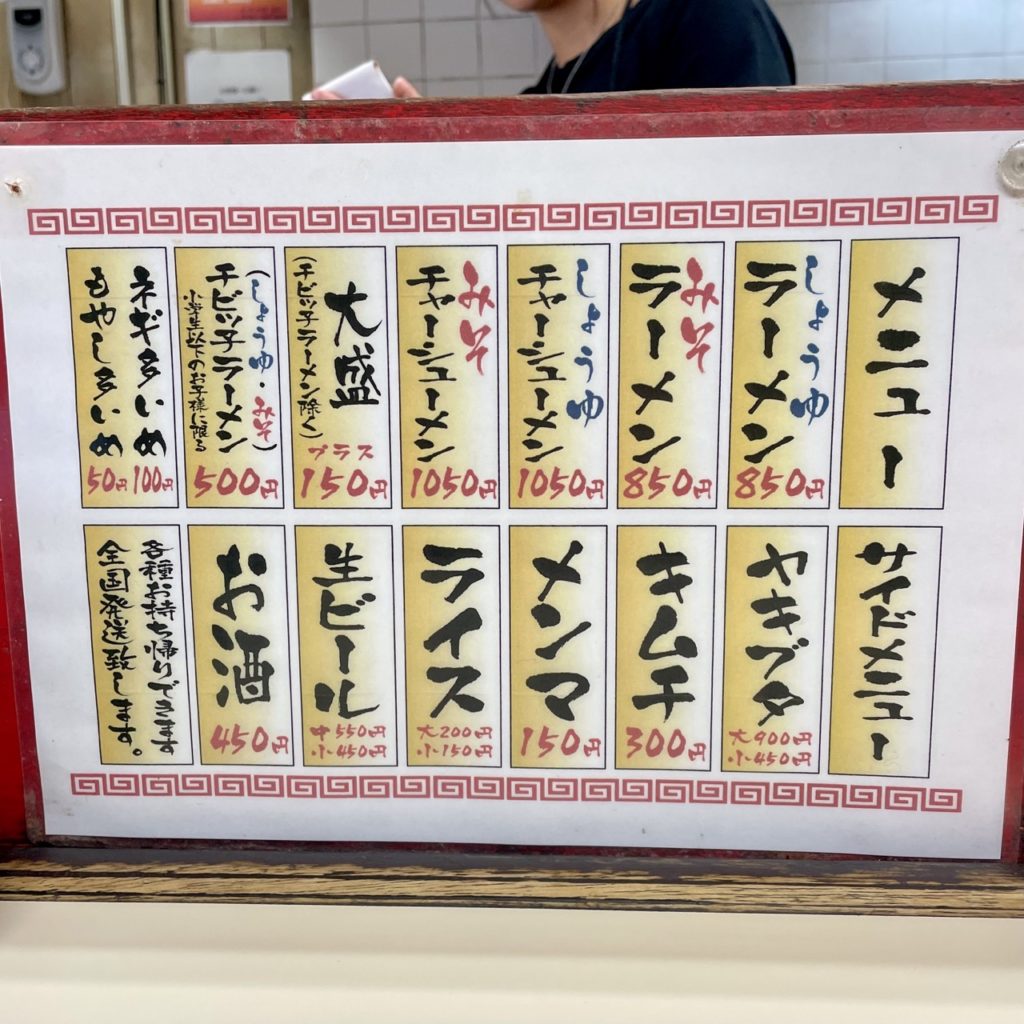 メニュー
しょうゆ
ラーメン
850円
みそ
ラーメン
850円
しょうゆ
チャーシューメン
1050円
みそ
チャーシューメン
1050円
大盛
(チビッ子ラーメン除く)
プラス
150円
(しょうゆ・みそ)
チビッ子ラーメン
小学生以下のお子様に限る
500円
ネギ多いめ
100円
もやし多いめ
50円
サイドメニュー
ヤキブタ
大900円
小450円
キムチ
300円
メンマ
150円
ライス
大200円
小150円
生ビール
中550円
小450円
お酒
450円
各種お持ち帰りできます
全国発送致します。